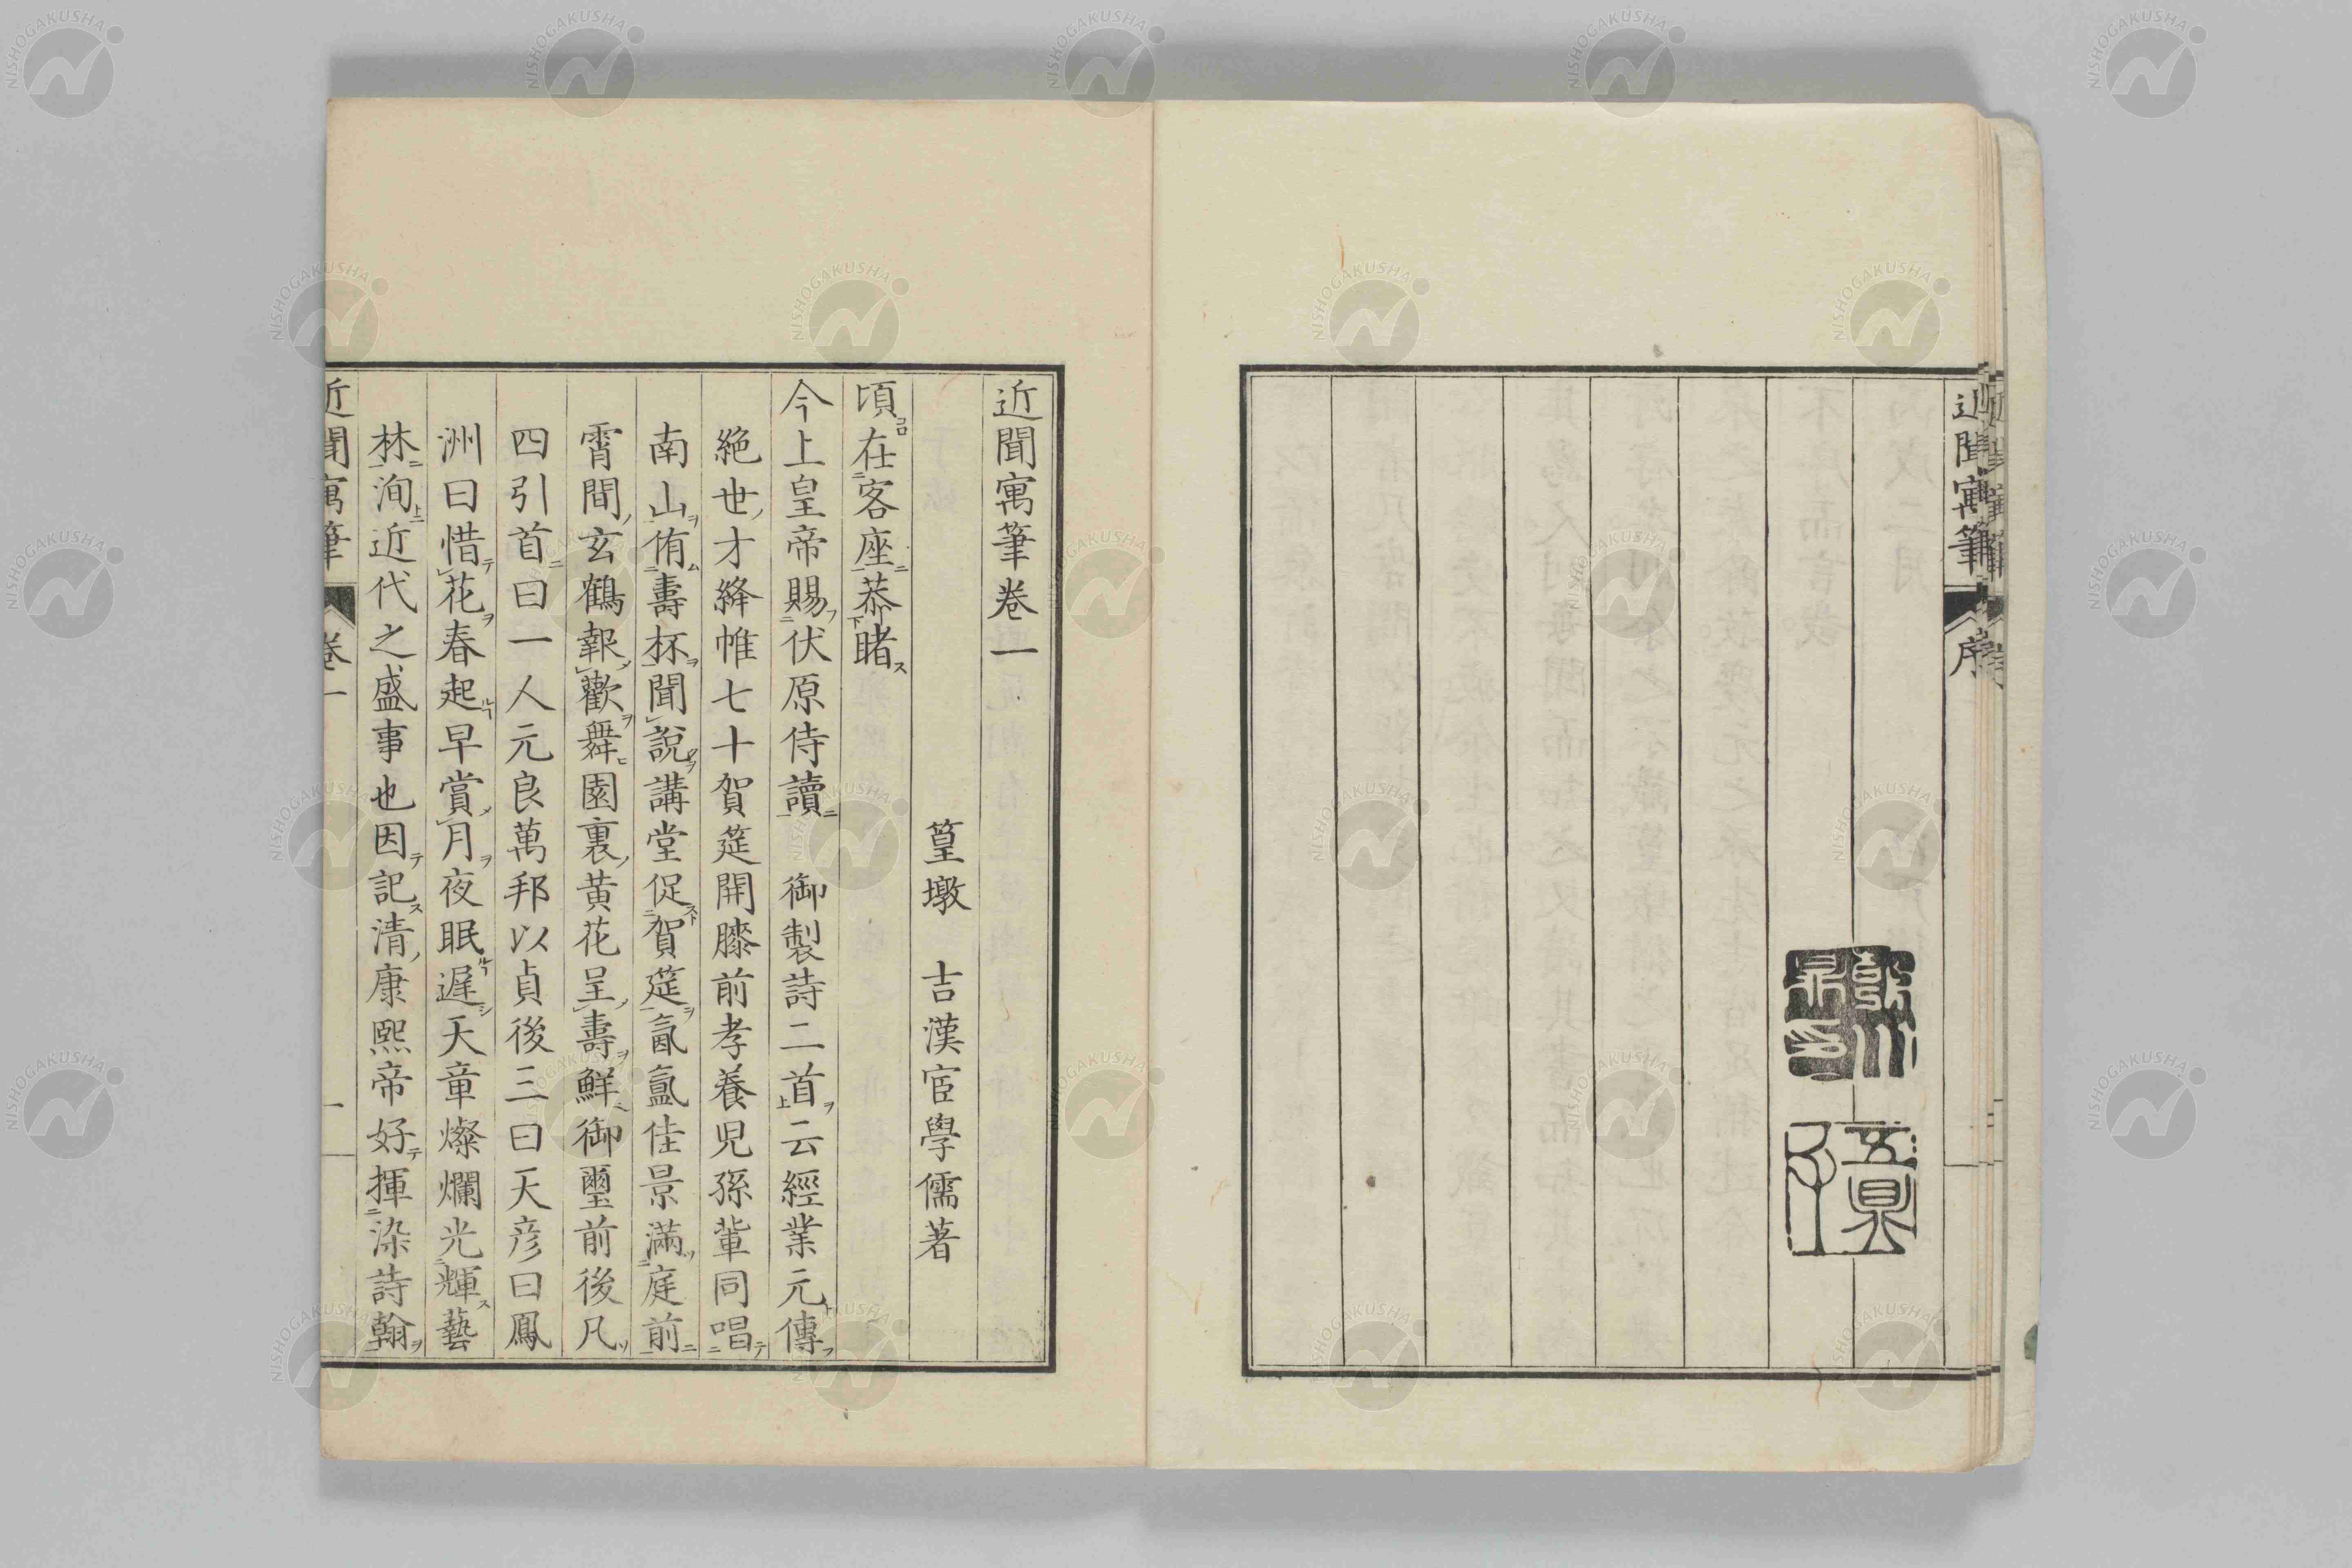 近聞寓筆
序
近聞寓筆卷一
篁墩　吉漢宦學儒著
頃在客座恭睹
今上皇帝賜伏原侍讀　御製詩二首云經業元傳
絶世才絳帷七十賀筵開膝前孝養兒孫輩同唱
南山侑壽杯聞說講堂促賀筵氤氳佳景滿庭前
霄間玄鶴報歡舞園裏黄花呈壽鮮御璽前後凡
四引首曰一人元良萬邦以貞後三曰天彦曰鳳
洲曰惜花春起早賞月夜眠遲天章燦爛光輝藝
林洵近代之盛事也因記清康熙帝好揮染詩翰
近聞寓筆
卷一
一
NISHOGAKUSHA